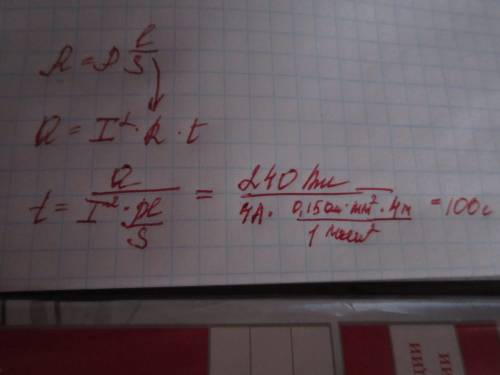 R = ρ l/S
Q = I² · R · t
t = Q / (I² · ρl/S) = 240 Дж / (4А · 0,15 Ом · мм² · 4м / 1 мм²) = 100 с